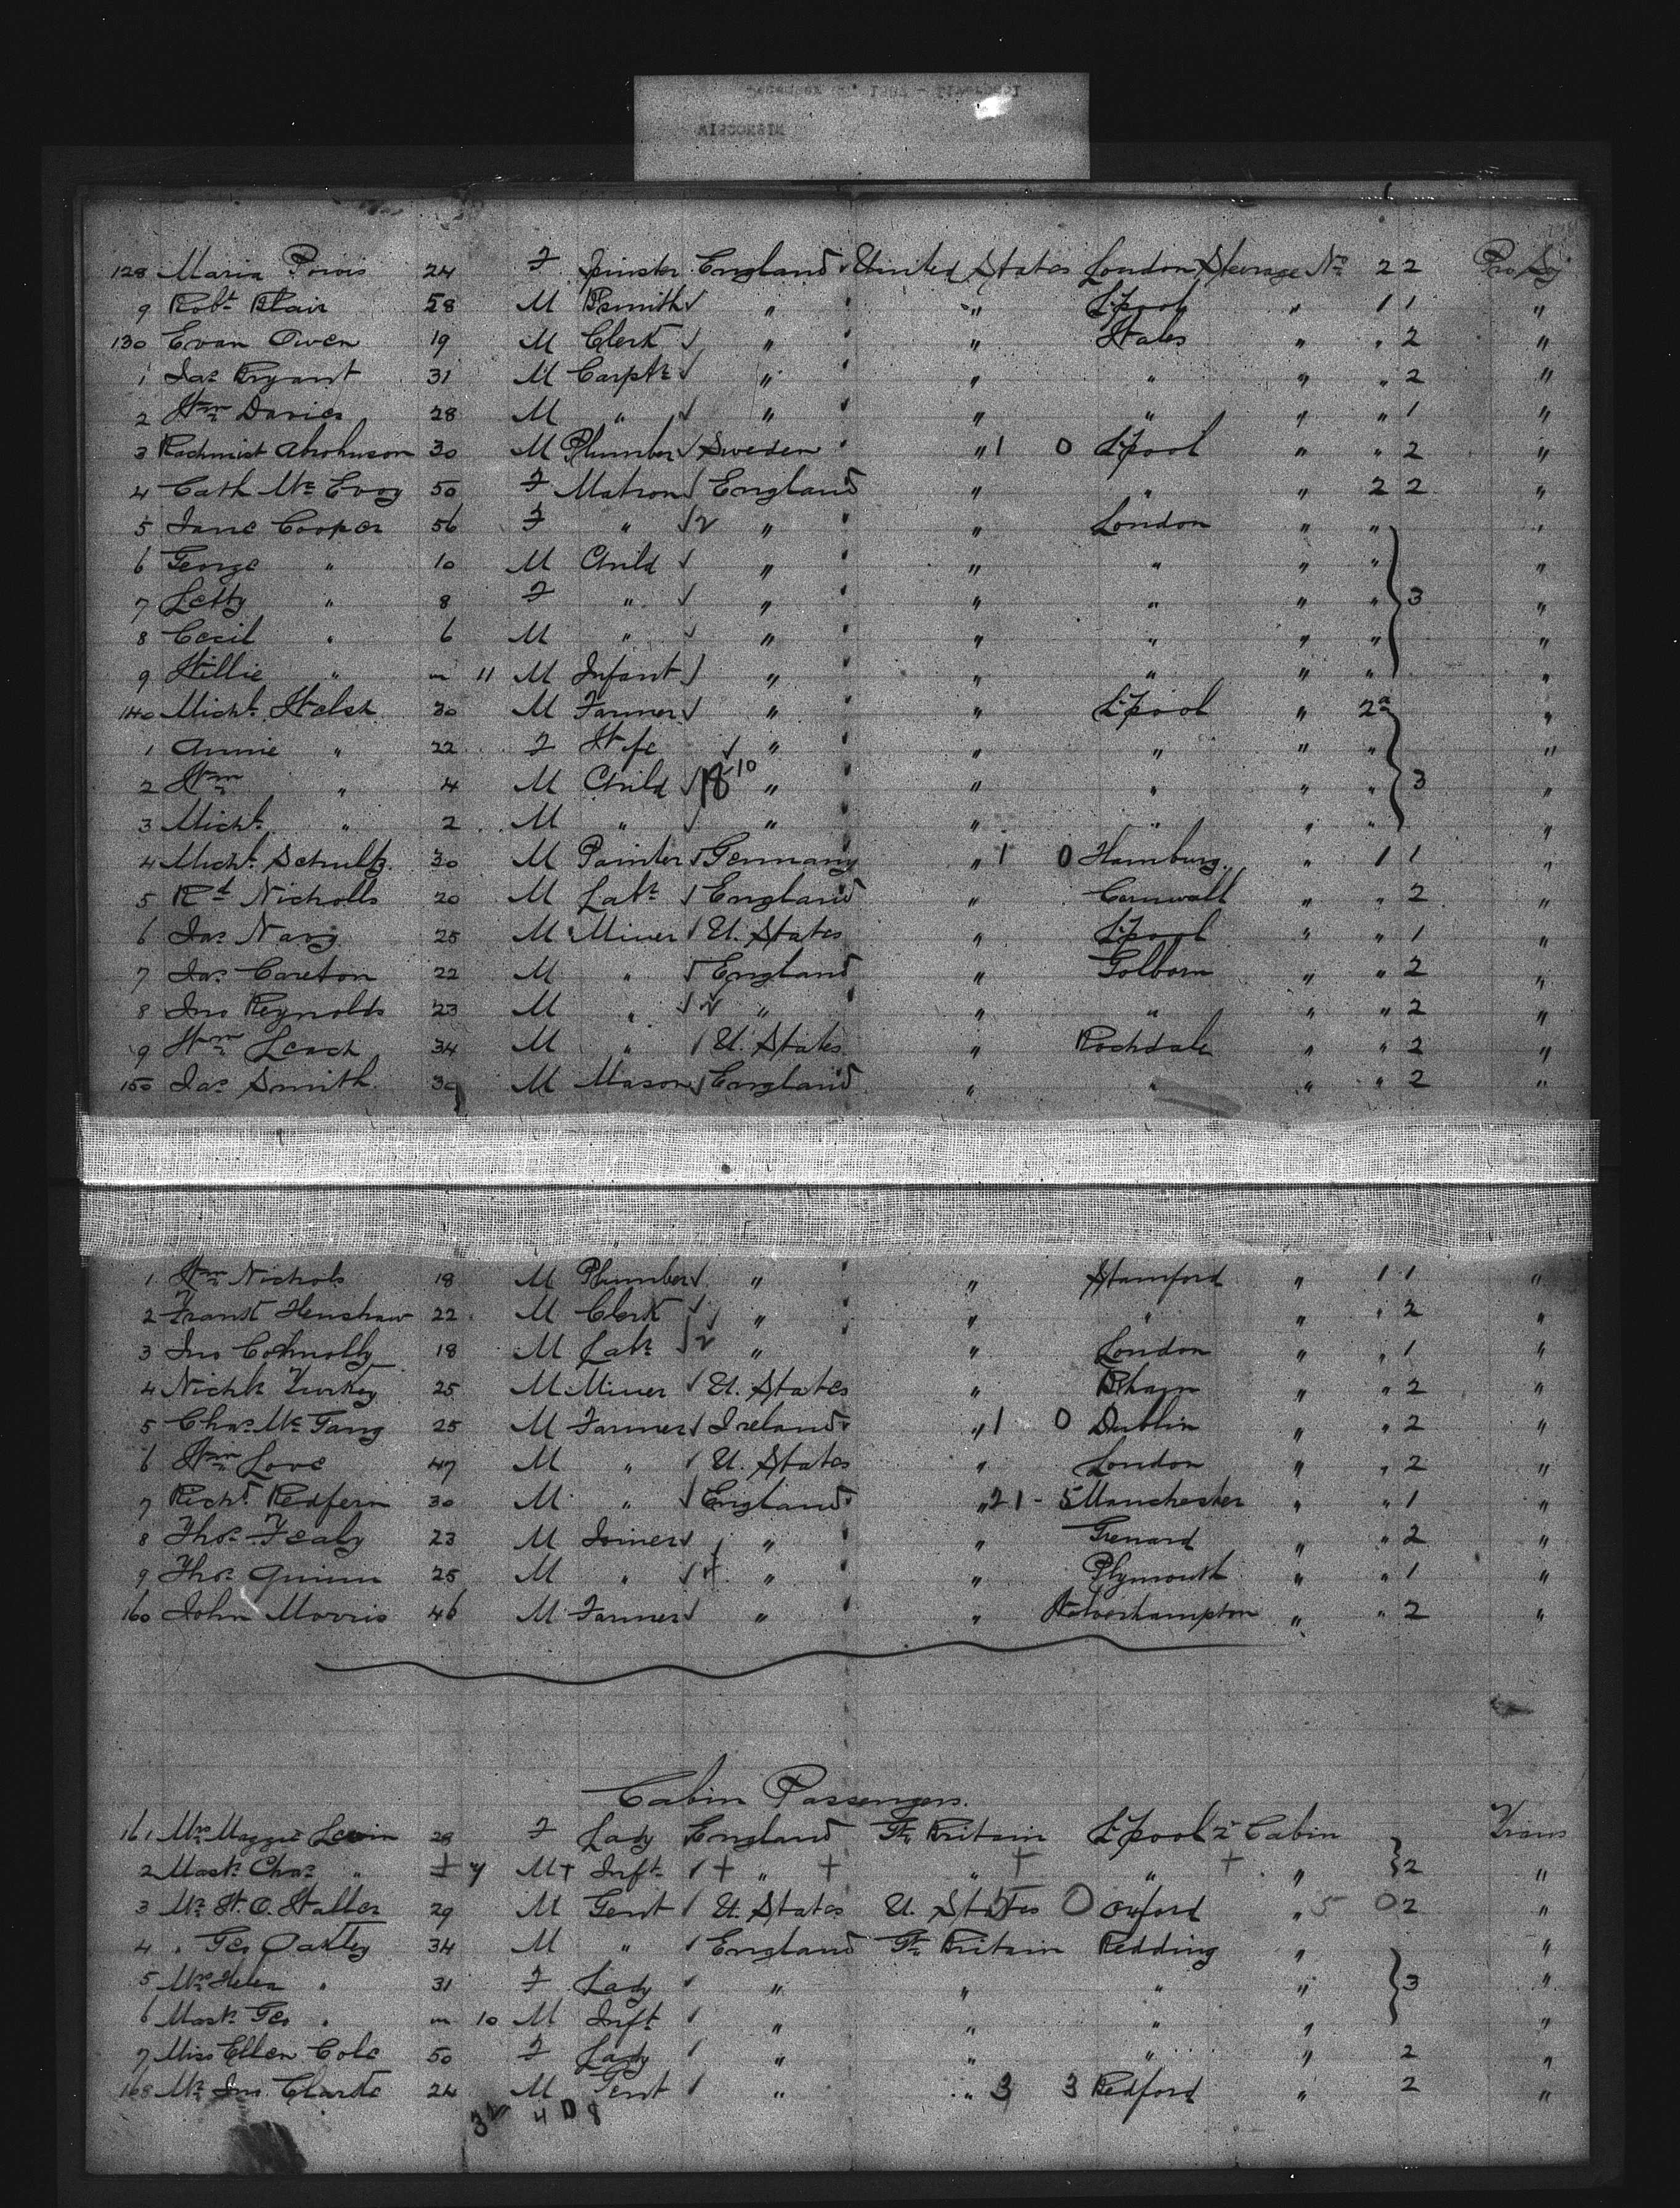 WISCONSIN
128 Maria Powis 24 F Spinster England United States London Steerage No 2 2 Pro Soj
9 Robt Blair 58 M Bsmith " " L'pool " 1 1 "
130 Evan Owen 19 M Clerk " " Wales " " 2 "
1 Jas Bryant 31 M Carptr " " " " " 2 "
2 Wm Davies 28 M " " " " " " 1 "
3 Abrohmson 30 M Plumber Sweden " 1 0 L'pool " " 2 "
4 Cath Mc Evoy 50 F Matron England " " " 2 2 "
5 Jane Cooper 56 F " " " London " " "
6 George " 10 M Child " " " " " "
7 Letty " 8 F " " " " " " 3 "
8 Cecil " 6 M " " " " " " "
9 Willie " m 11 M Infant " " " " " "
140 Michl Welsh 30 M Farmer " " L'pool " 2a "
1 Annie " 22 F Wife " " " " " "
2 Wm " 4 M Child 18 10 " " " " " 3 "
3 Michl " 2 M " " " " " " "
4 Michl Schultz 30 M Painter Germany " 1 0 Hamburg " 1 1 "
5 Rd Nicholls 20 M Labr England " Cornwall " " 2 "
6 Jas Navy 25 M Miner U. States " L'pool " " 1 "
7 Jas Careton 22 M " England " Golborn " " 2 "
8 Jno Reynolds 23 M " " " " " " 2 "
9 Wm Leach 34 M " U. States " Rochdale " " 2 "
150 Jas Smith 30 M Mason England " " " " 2 "
1 Wm Nichols 18 M Plumber " " Stamford " 1 1 "
2 Frank Henshaw 22 M Clerk " " " " " 2 "
3 Jno Connolly 18 M Labr " " London " " 1 "
4 Nichls Turkey 25 M Miner U. States " B'ham " " 2 "
5 Chas Mc Tang 25 M Farmer Ireland " 1 0 Dublin " " 2 "
6 Wm Love 47 M " U. States " London " " 2 "
7 Richd Redfern 30 M " England " 21 - 5 Manchester " " 1 "
8 Thos Fealy 23 M Joiner " " Grenard " " 2 "
9 Thos Quinn 25 M " " " Plymouth " " 1 "
160 John Morris 46 M Farmer " " Wolverhampton " " 2 "
Cabin Passengers.
161 Mrs Maggie Lewin 28 F Lady England Gt Britain L'pool 2d Cabin Trans
2 Mastr Chas " 7 M Inft " " " " 2 "
3 Mr W. O. Waller 29 M Gent U. States U. States 0 Oxford " 5 0 2 "
4 " Geo Oakley 34 M " England Gt Britain Redding " "
5 Mrs Helen " 31 F Lady " " " " 3 "
6 Mastr Geo " m 10 M Inft " " " " "
7 Miss Ellen Cole 50 F Lady " " " " 2 "
168 Mr Jno Clarke 24 M Gent " " 3 3 Bedford " 2 "